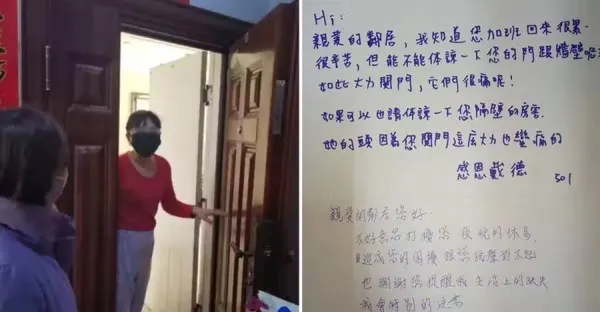 Hi:
親愛的鄰居，我知道您加班回來很累.
很辛苦，但能不能体諒一下您的門跟牆壁呢?
如此大力関門，它們很痛呢!
如果可以也請体諒一下您隔壁的房客.
她的頭因為您関門這広大力也蠻痛的
感恩戴德
501
親愛的鄰居您好:
不好意思打擾您夜晚的休息,
造成您的困擾跟您說聲對不起
也謝謝您提醒我生活上的缺失
我會特別的注意